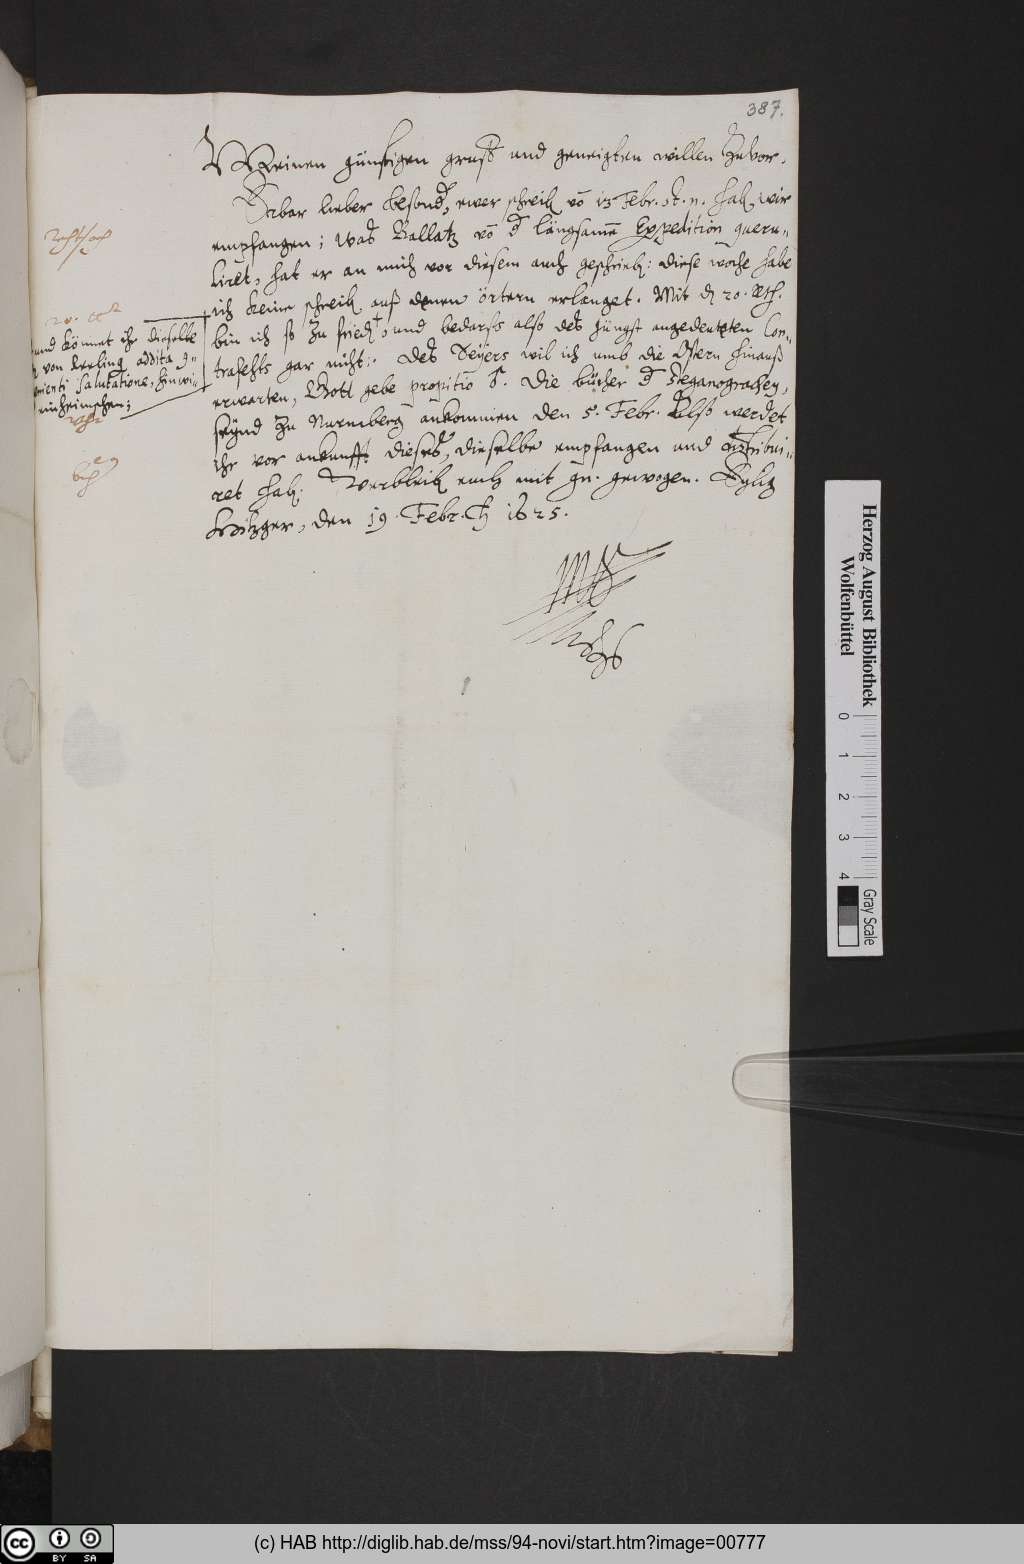 387.
Meinen günstigen gruß und geneigten willen zuvor.
Erbar lieber besond, ewer schreib vō 13 Febr. st. n. hab wir
empfangen; was Rallatz vō d längsamē Expedition queru-
liret, hat er an mich vor diesem auch geschrieb: diese woche habe
ich keine schreib auß denen örtern erlanget. Mit d 20. Rth.
bin ich so zu fried, und bedarfs also des jüngst angedeuteten Con-
trafehts gar nicht. Des Seyers wil ich umb die Ostern hinauß
erwarten, Gott gebe propitio S. Die bücher d Steganograhey,
seynd zu Nurmberg ankommen den 5. Febr. Also werdet
ihr vor ankunfft dieses, dieselbe empfangen und distribui-
ret hab. Verbleib euch mit gn. gewogen.
Hitzger, den 19. Febr. 1625.
rechtsach
20. Rth
und könnet ihr dieselbe
von addita
salutatione,
einheimschen;
Uhr
büch
Herzog August Bibliothek
Wolfenbüttel
0 1 2 3 4
Gray Scale
cc BY SA
(c) HAB http://diglib.hab.de/mss/94-novi/start.htm?image=00777